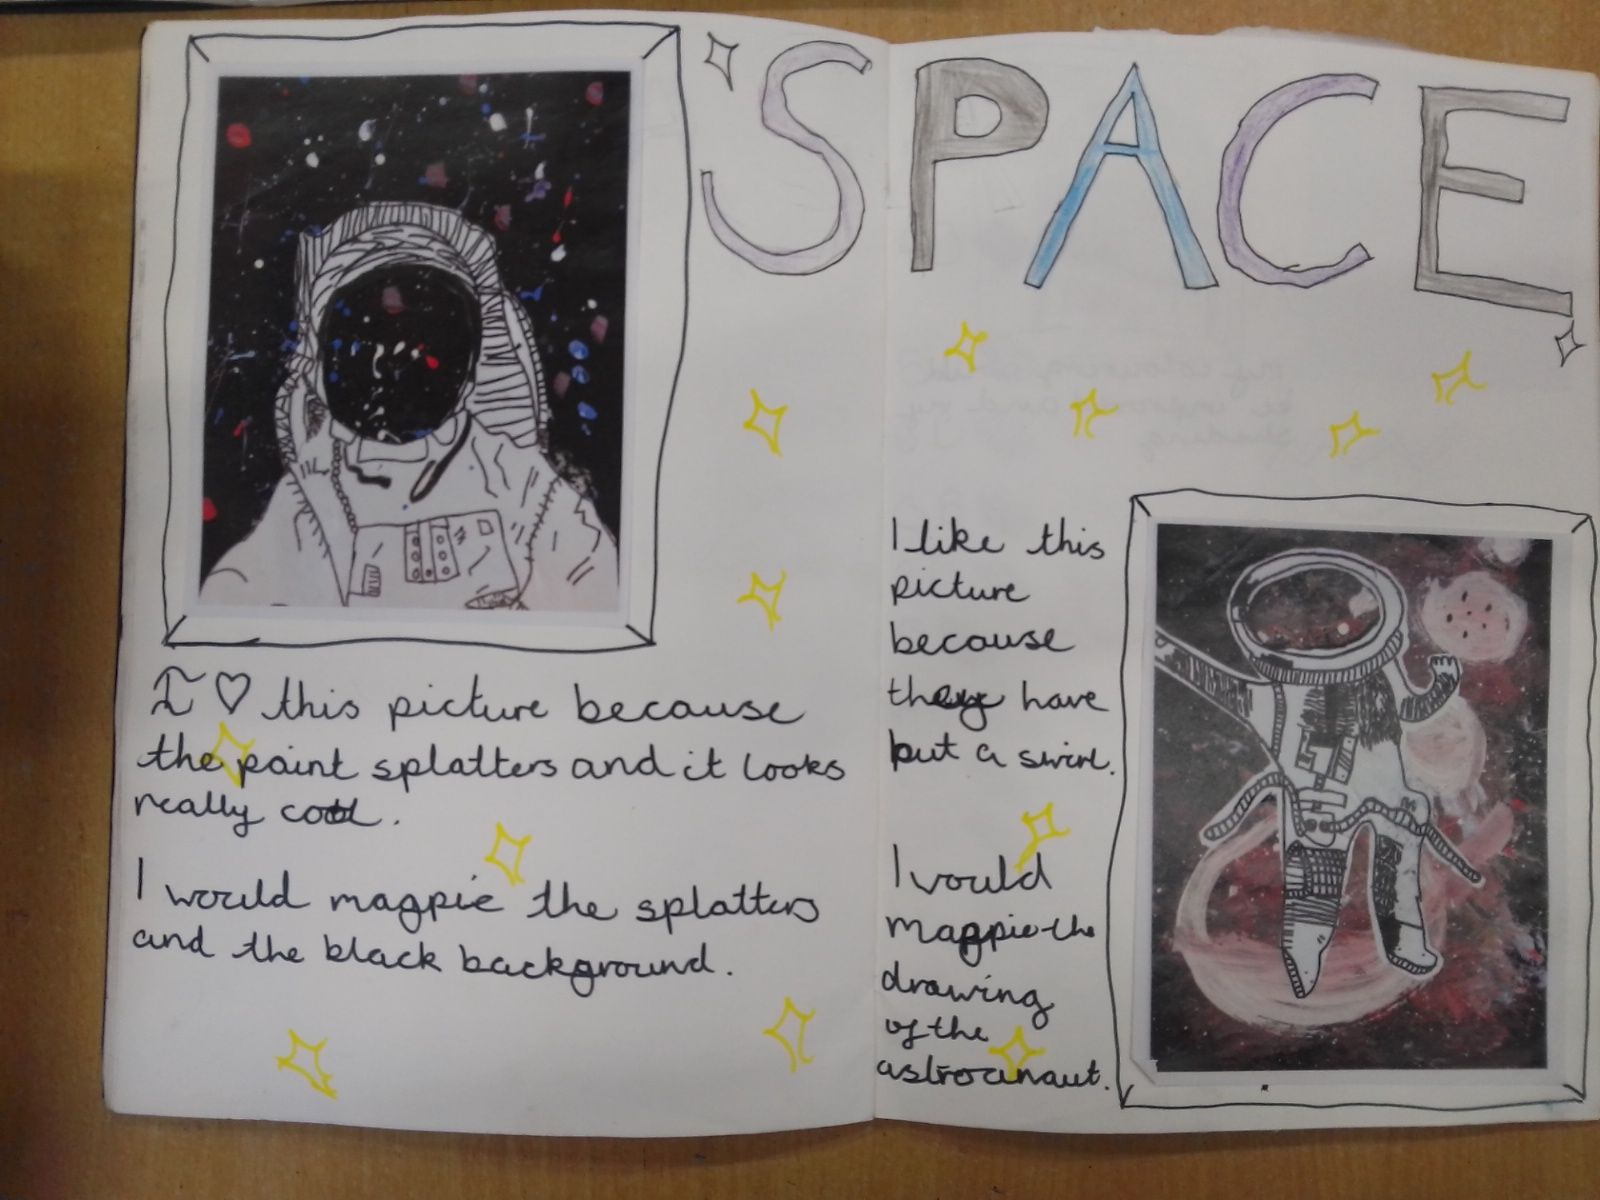 SPACE
I ♡ this picture because
the paint splatters and it looks
really cool.
I would magpie the splatters
and the black background.
I like this
picture
because
they have
put a swirl.
I would
magpie the
drawing
of the
astronaut.